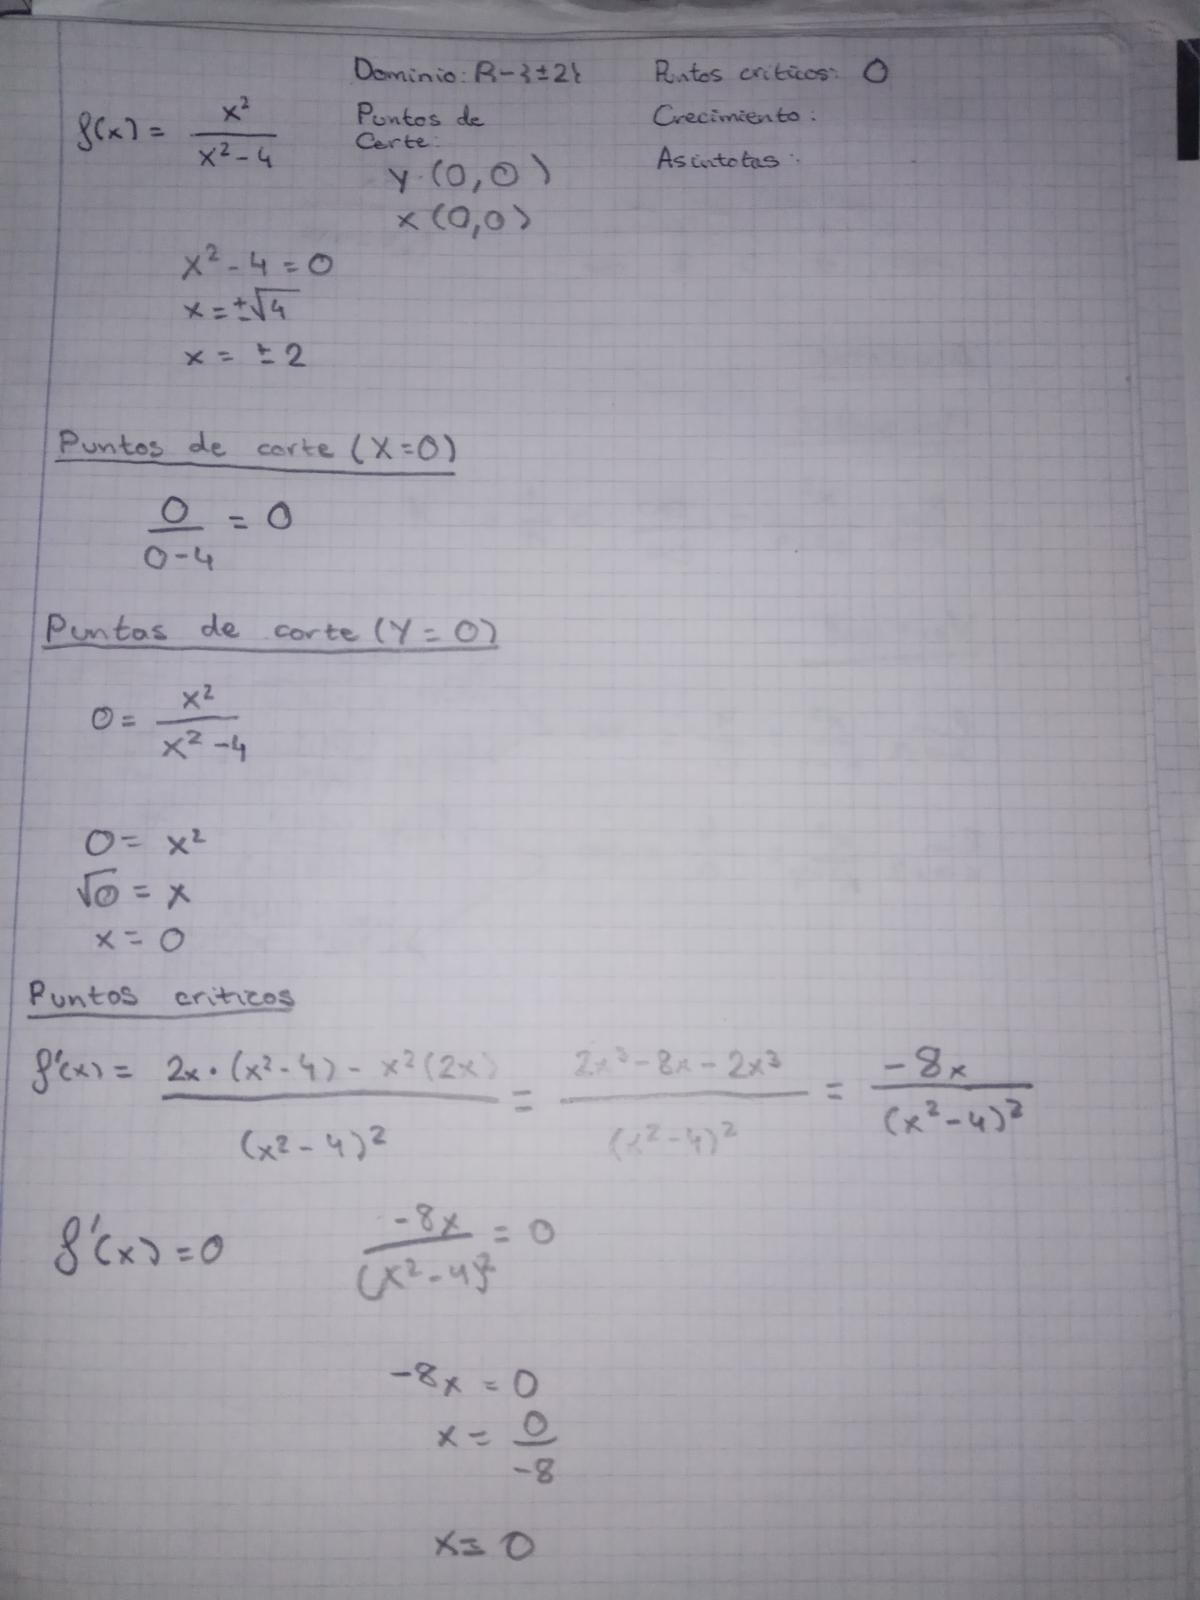 Dominio: R-{±2}
Puntos críticos: 0
f(x) = x²/(x²-4)
Puntos de
Corte:
Crecimiento:
Y (0,0)
Asíntotas:
x (0,0)
x²-4=0
x=±√4
x= ±2
Puntos de corte (X=0)
0/(0-4) = 0
Puntos de corte (Y=0)
0= x²/(x²-4)
0= x²
√0 = x
x= 0
Puntos criticos
f'(x)= (2x·(x²-4)-x²(2x))/(x²-4)² = (2x³-8x-2x³)/(x²-4)² = -8x/(x²-4)²
f'(x)=0 -8x/(x²-4)² = 0
-8x = 0
x= 0/-8
x= 0